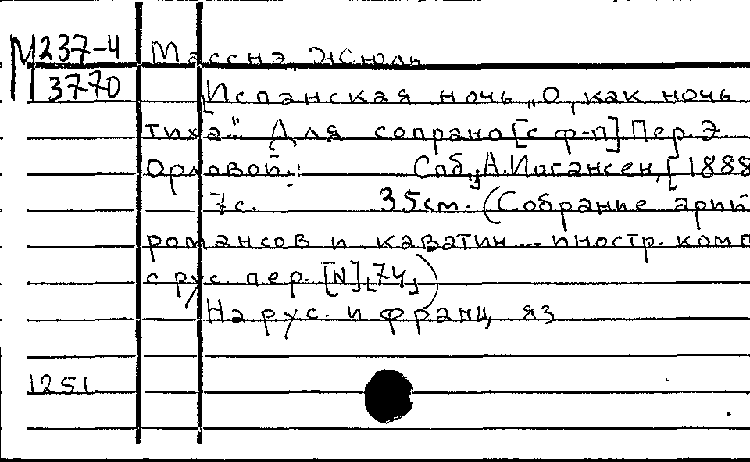 М237-4 Массна, Жюль
3770 [Испанская ночь „О, как ночь
тиха“. Для сопрано [с ф-п] Пер. Э
Орловой.: Спб, А. Иогансен, [1888
7с. 35см. (Собрание арий
романсов и каватин ... иностр. комп
с рус. пер. [N] [74])
На рус. и франц, яз
1251